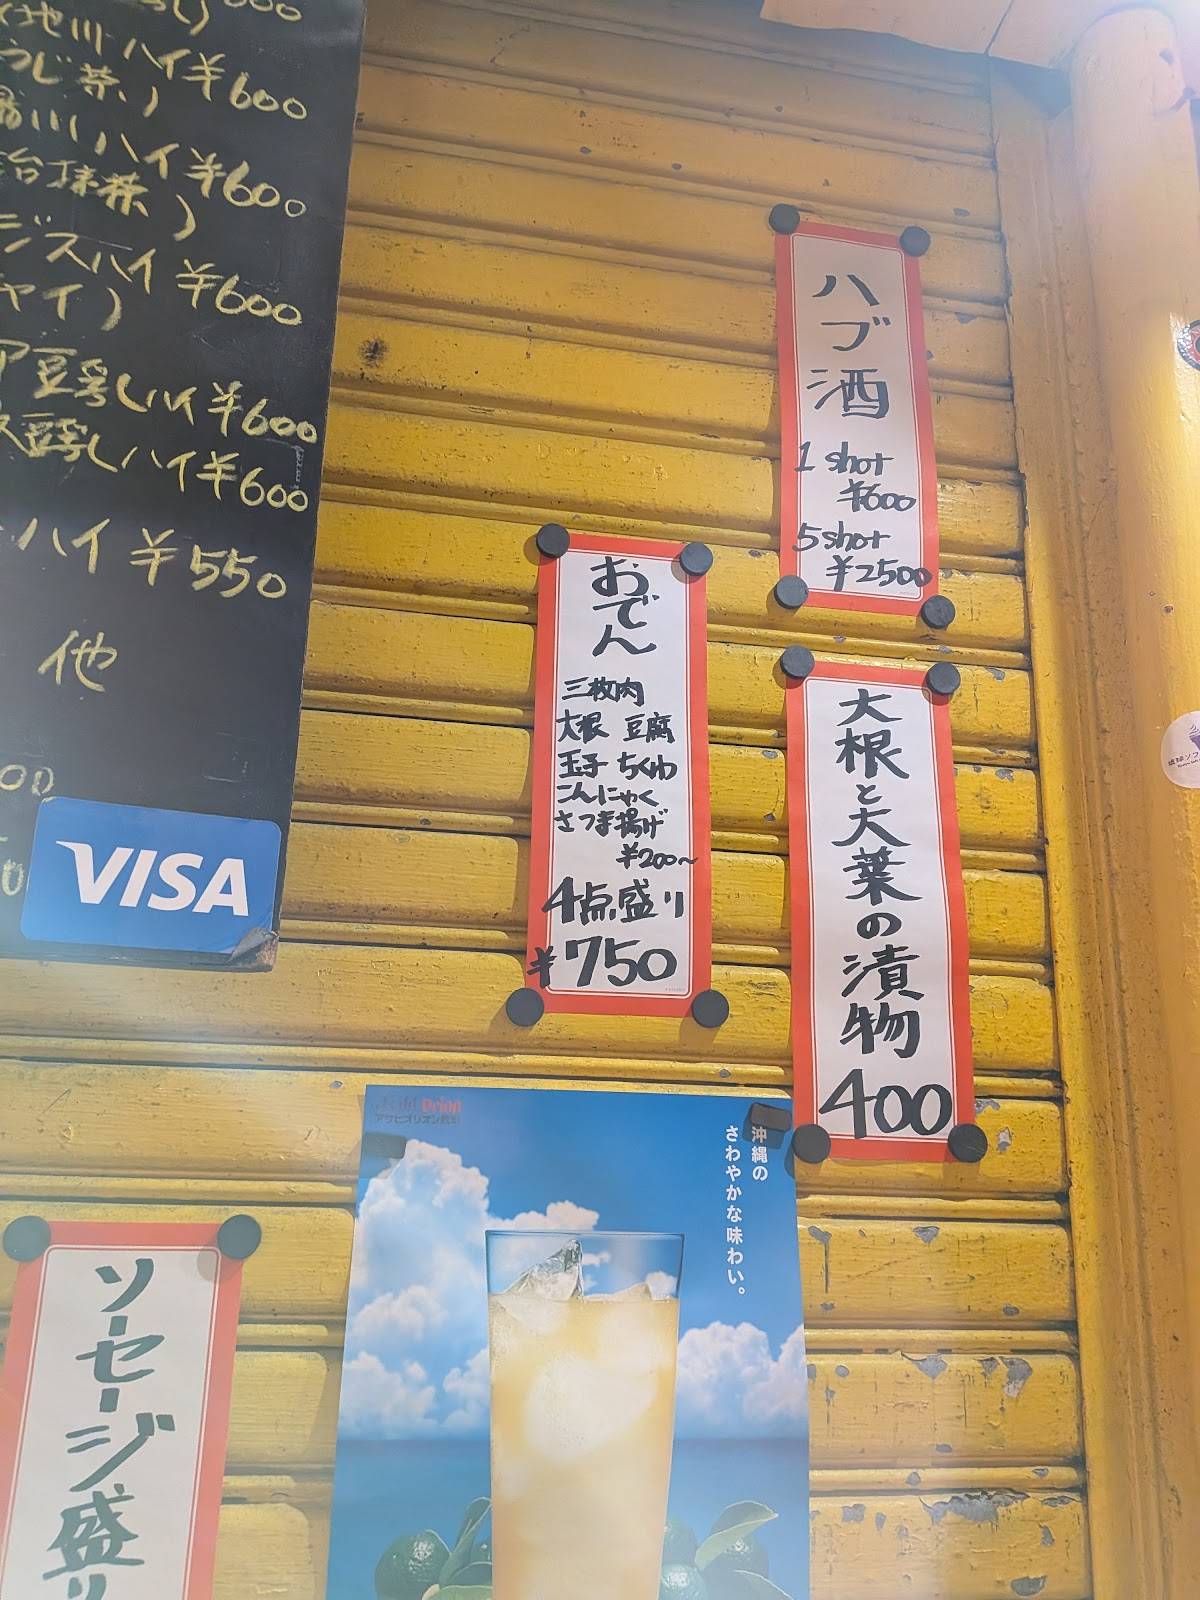 ハイ ¥600
茶)
ハイ ¥600
抹茶)
ジスハイ ¥600
ャイ)
豆乳しハイ ¥600
豆乳しハイ ¥600
ハイ ¥550
他
VISA
ハブ酒
1 shot
¥600
5 shot
¥2500
おでん
三枚肉
大根 豆腐
玉子 ちくわ
こんにゃく
さつま揚げ
¥200〜
4点盛り
¥750
大根と大葉の漬物
400
Orion
アサヒオリオン飲料
沖縄の
さわやかな味わい。
ソーセージ盛り